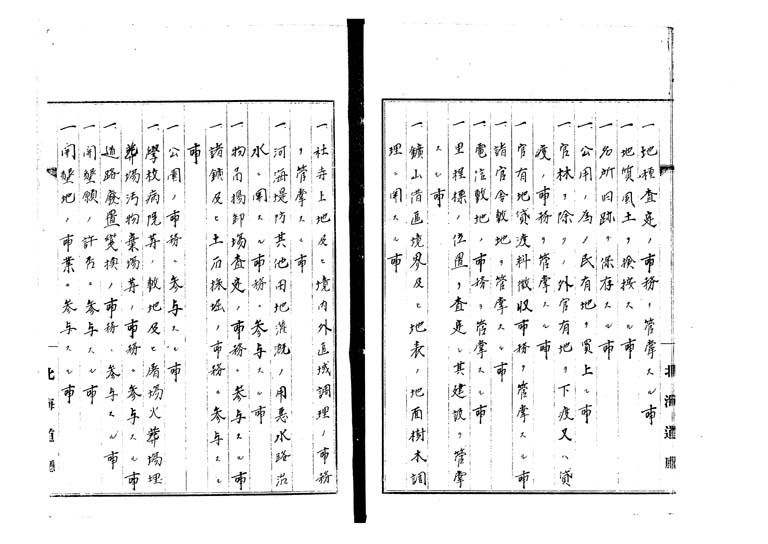 一 地種査定ノ事務ヲ管掌スル事
一 地質風土ヲ検按スル事
一 名所旧跡ヲ保存スル事
一 公用ノ為ノ民有地ヲ買上ル事
一 官林ヲ除クノ外官有地ヲ下渡又ハ貸
渡ノ事務ヲ管掌スル事
一 官有地貸渡料徴収事務ヲ管掌スル事
一 諸官舎敷地ヲ管掌スル事
一 電信敷地ノ事務ヲ管掌スル事
一 里程標ノ位置ヲ査定シ其建設ヲ管掌
スル事
一 鑛山借區境界及ヒ地表ノ地面樹木調
理ニ関スル事
北海道廳
一 社寺上地及ヒ境内外區域調理ノ事務
ヲ管掌スル事
一 河海堤防其他田地灌漑ノ用悪水路沿
水ニ関スル事務ニ参与スル事
一 物品揚卸場査定ノ事務ニ参与スル事
一 諸鑛及ヒ土石採掘ノ事務ニ参与スル
事
一 公用ノ事務ニ参与スル事
一 學校病院等ノ敷地及ヒ屠場火葬場埋
葬場汚物棄場等ノ事務ニ参与スル事
一 道路廢置変換ノ事務ニ参与スル事
一 開墾願ノ許否ニ参与スル事
一 開墾地ノ事業ニ参与スル事
北海道廳